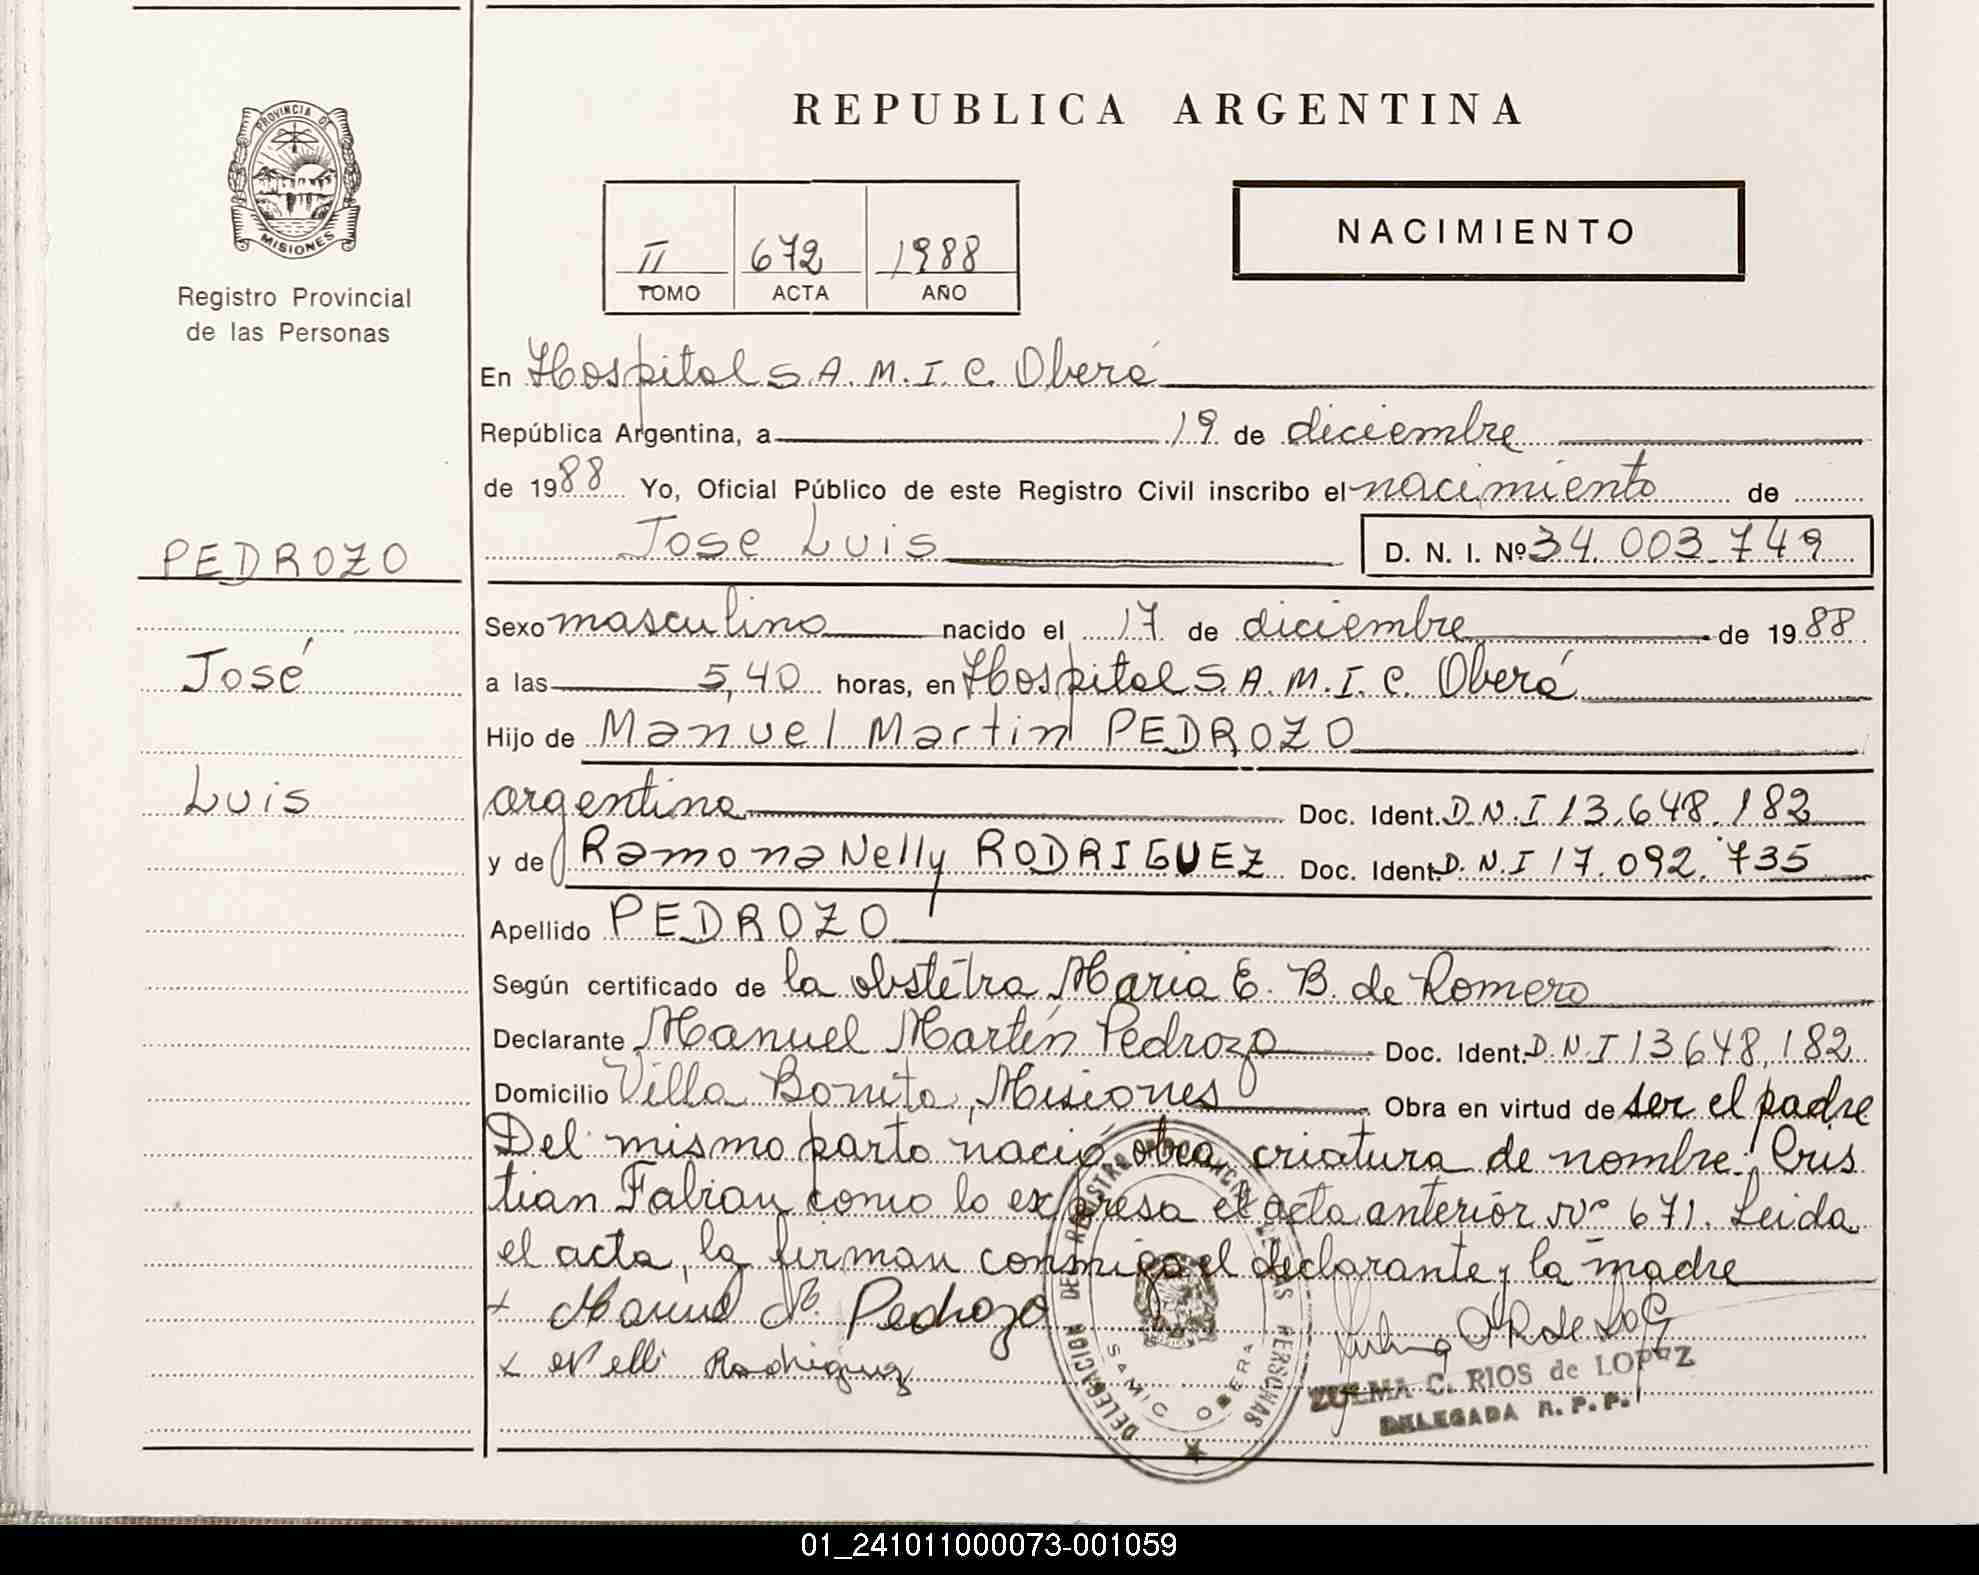 REPUBLICA ARGENTINA
PROVINCIA DE
MISIONES
Registro Provincial
de las Personas
II 672 1988
TOMO ACTA AÑO
NACIMIENTO
En Hospital S.A.M.I.C. Oberá
República Argentina, a 19 de diciembre
de 1988 Yo, Oficial Público de este Registro Civil inscribo el nacimiento de
Jose Luis D. N. I. Nº 34.003.749
PEDROZO
José
Luis
Sexo masculino nacido el 17 de diciembre de 1988
a las 5,40 horas, en Hospital S.A.M.I.C. Oberá
Hijo de Manuel Martin PEDROZO
argentina Doc. Ident. D.N.I 13.648.182
y de Ramona Nelly RODRIGUEZ Doc. Ident. D.N.I 17.092.735
Apellido PEDROZO
Según certificado de la obstétra Maria E. B. de Romero
Declarante Manuel Martín Pedrozo Doc. Ident. D.N.I 13.648.182
Domicilio Villa Bonita, Misiones Obra en virtud de ser el padre
Del mismo parto nació otra criatura de nombre: Cris
tian Fabian como lo expresa el acta anterior Nº 671. Leida
el acta, la firman conmigo el declarante y la madre
x Manuel M. Pedrozo
x Nelli Rodriguez
DELEGACION DEL REGISTRO PROVINCIAL DE LAS PERSONAS
SAMIC OBERA
ZULMA C. RIOS de LOPEZ
DELEGADA R. P. P.
01_241011000073-001059